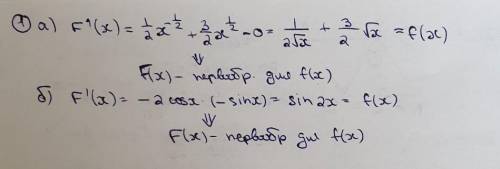 ① а) F'(x) = 1/2 x^(-1/2) + 3/2 x^(1/2) - 0 = 1/(2√x) + 3/2 √x = f(x)
⇓
F(x) - первообр. для f(x)
б) F'(x) = -2cosx·(-sinx) = sin2x = f(x)
⇓
F(x) - первообр для f(x)